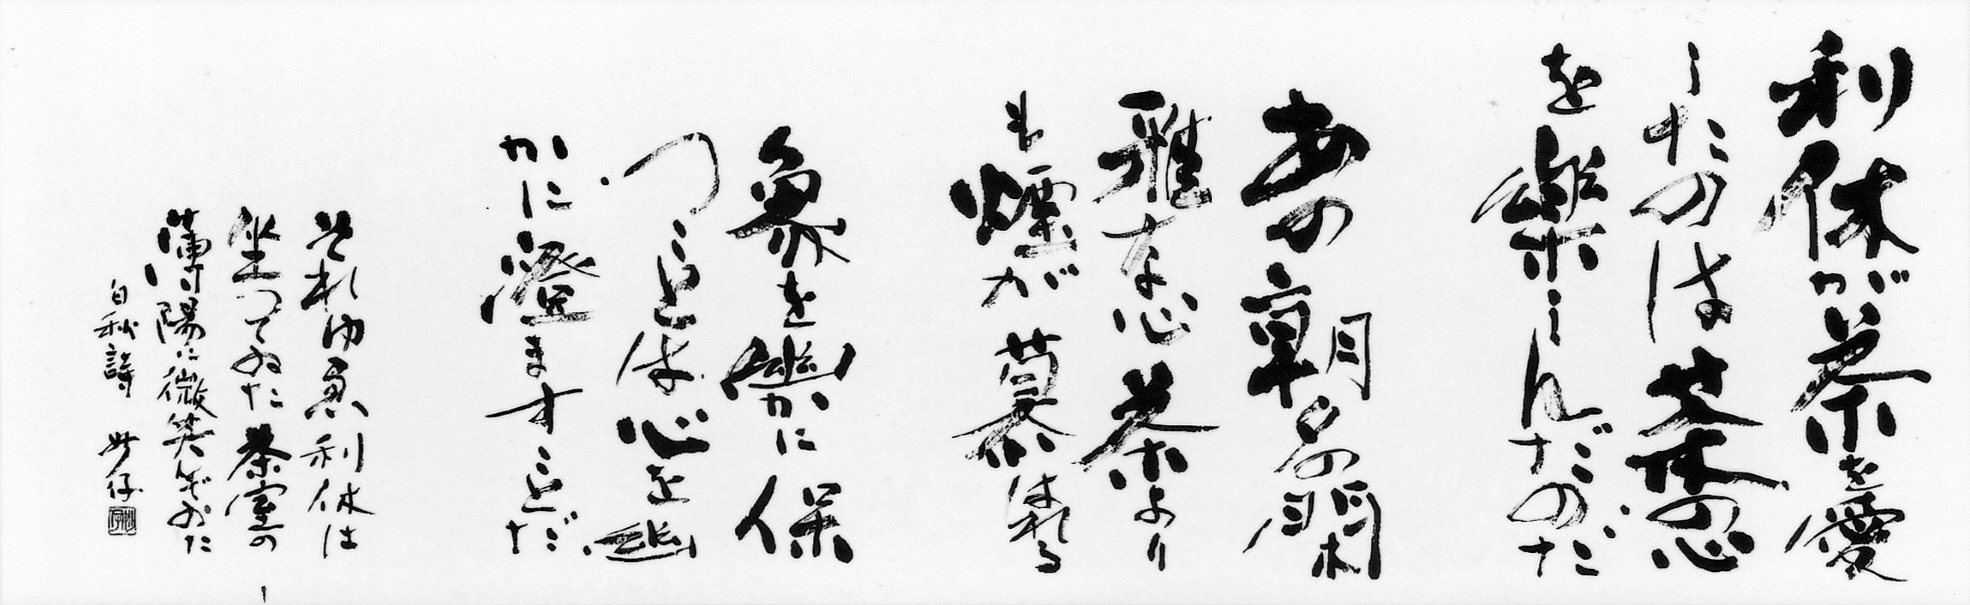 利休が茶を愛
したのは茶の心
を楽しんだのだ
あの朝夕の閑
雅な心茶より
も煙が慕はれる
象を幽かに保
つことは心を幽
かに澄ますことだ
それゆゑ利休は
坐つてゐた茶室の
薄陽に微笑んでゐた
白秋詩